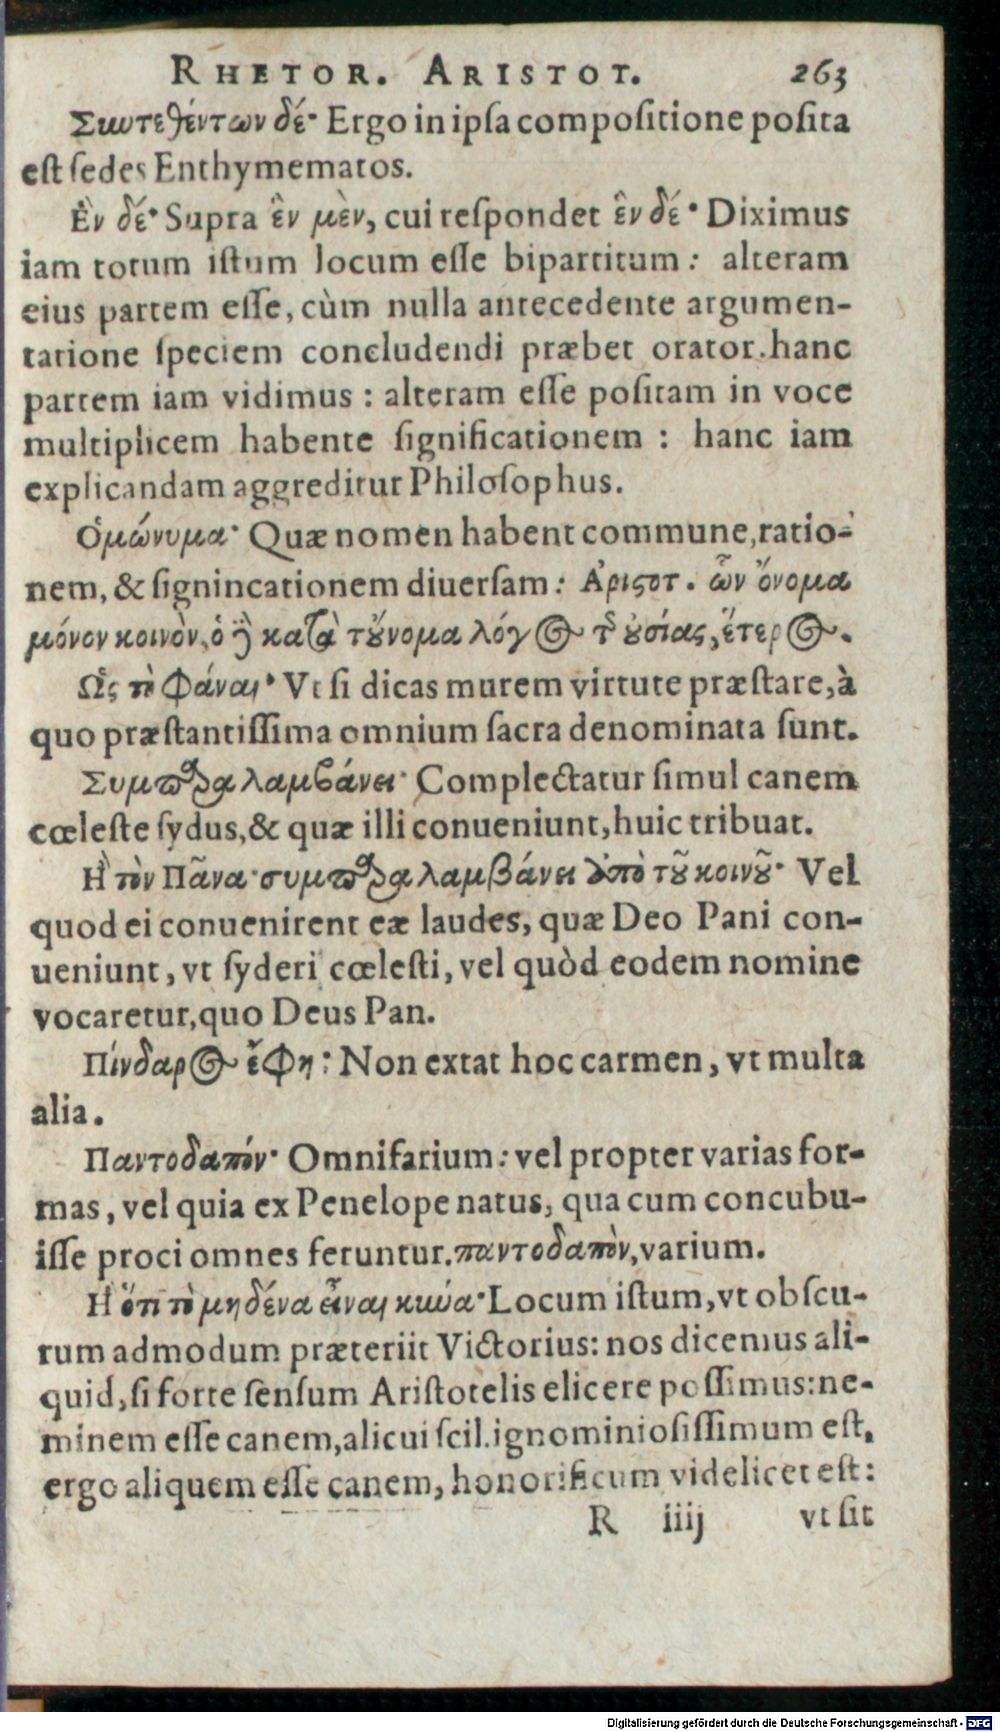 RHETOR. ARISTOT. 263
Συντεθέντων δέ· Ergo in ipſa compoſitione poſita
eſt ſedes Enthymematos.
Ἓν δέ· Supra ἓν μὲν, cui reſpondet ἓν δέ· Diximus
iam totum iſtum locum eſſe bipartitum: alteram
eius partem eſſe, cùm nulla antecedente argumen-
tatione ſpeciem concludendi præbet orator. hanc
partem iam vidimus: alteram eſſe poſitam in voce
multiplicem habente ſignificationem: hanc iam
explicandam aggreditur Philoſophus.
Ὁμώνυμα· Quæ nomen habent commune, ratio-
nem, & ſignincationem diuerſam: Ἀριστ. ὧν ὄνομα
μόνον κοινὸν, ὁ δὲ κατὰ τοὔνομα λόγος τῆς οὐσίας, ἕτερος.
Ὡς τὸ φάναι· Vt ſi dicas murem virtute præſtare, à
quo præſtantiſſima omnium ſacra denominata ſunt.
Συμπαραλαμβάνει· Complectatur ſimul canem
cœleſte ſydus, & quæ illi conueniunt, huic tribuat.
Ἢ τὸν Πᾶνα· συμπαραλαμβάνει ἀπὸ τοῦ κοινοῦ· Vel
quod ei conuenirent eæ laudes, quæ Deo Pani con-
ueniunt, vt ſyderi cœleſti, vel quòd eodem nomine
vocaretur, quo Deus Pan.
Πίνδαρος ἔφη: Non extat hoc carmen, vt multa
alia.
Παντοδαπόν· Omnifarium: vel propter varias for-
mas, vel quia ex Penelope natus, qua cum concubu-
iſſe proci omnes feruntur. παντοδαπὸν, varium.
Ἢ ὅτι τὸ μηδένα εἶναι κύνα· Locum iſtum, vt obſcu-
rum admodum præteriit Victorius: nos dicemus ali-
quid, ſi forte ſenſum Ariſtotelis elicere poſſimus: ne-
minem eſſe canem, alicui ſcil. ignominioſiſſimum eſt,
ergo aliquem eſſe canem, honorificum videlicet eſt:
R iiij vt ſit
Digitalisierung gefördert durch die Deutsche Forschungsgemeinschaft - DFG